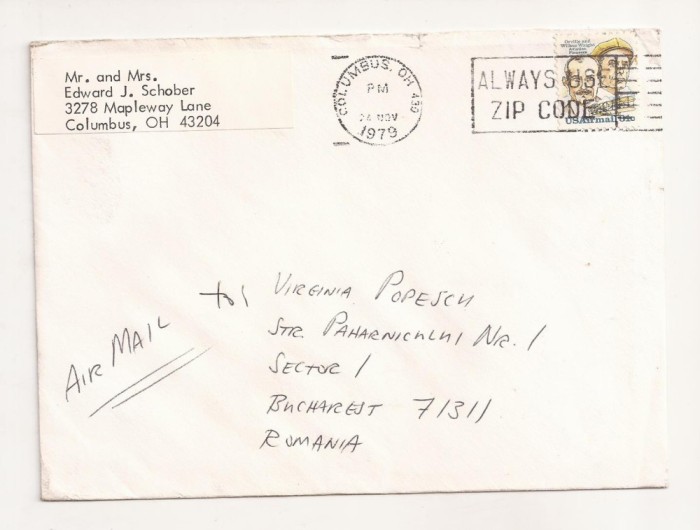 Mr. and Mrs.
Edward J. Schober
3278 Mapleway Lane
Columbus, OH 43204
COLUMBUS, OH 430
PM
24 NOV
1979
ALWAYS USE
ZIP CODE
Orville and
Wilbur Wright
Aviation
Pioneers
USAirmail 31c
to:
VIRGINIA POPESCU
STR. PAHARNICULUI NR. 1
SECTOR 1
BUCHAREST 71311
ROMANIA
AIR MAIL